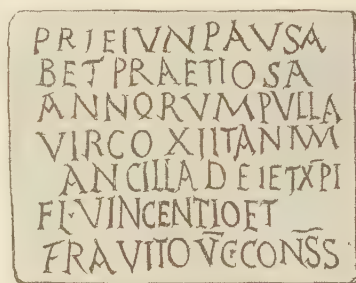 PRIEIVNPAVSA
BETPRAETIOSA
ANNORVMPVLLA
VIRCO XIITANTVM
ANCILLA DEIETXPI
FL·VINCENTIOET
FRAVITOVC·CONSS